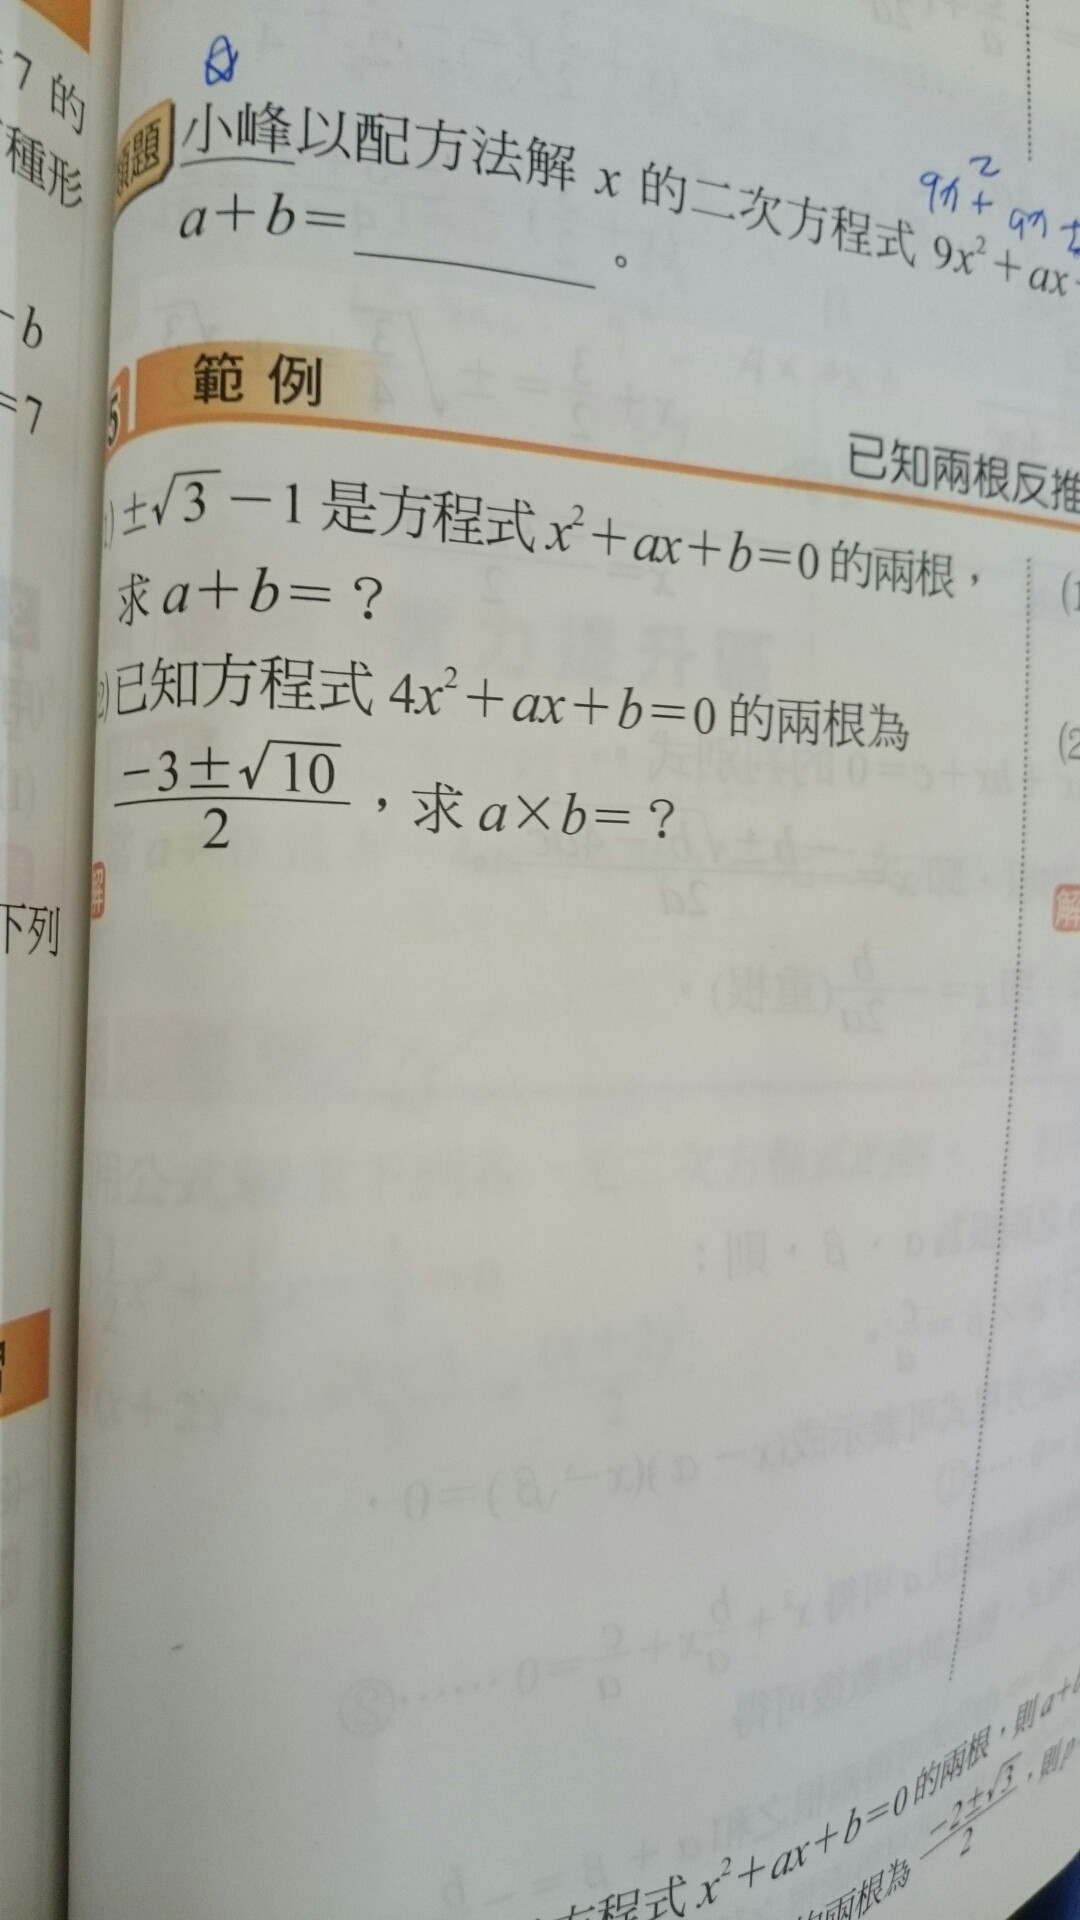 7 的
種形
-b
=7
下列
類題 小峰以配方法解 x 的二次方程式 9x²+ax
9x²+ax±
a+b=________。
5 範例
已知兩根反推
(1) ±√3-1 是方程式 x²+ax+b=0 的兩根，
求 a+b=？
(2) 已知方程式 4x²+ax+b=0 的兩根為
(-3±√10)/2，求 a×b=？
解
(1
(2
解
方程式 x²+ax+b=0 的兩根，則 a+
的兩根為 (-2±√3)/2，則 p